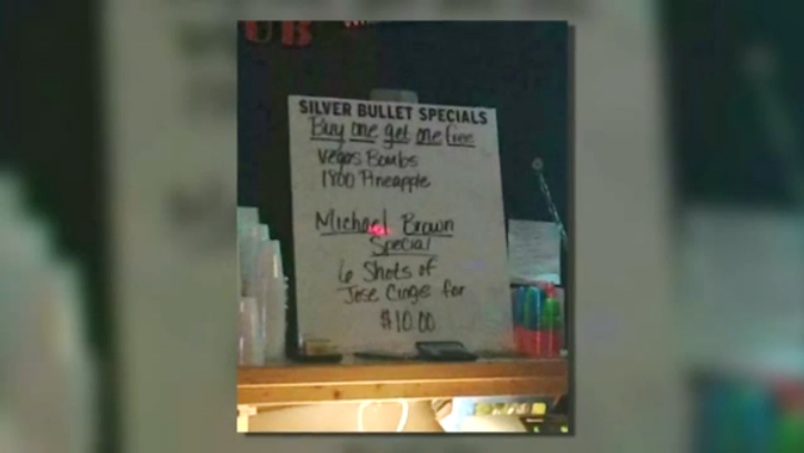 UB
SILVER BULLET SPECIALS
Buy one get one free
Vegas Bombs
1800 Pineapple
Michael Brown
Special
6 Shots of
Jose Cuervo for
$10.00